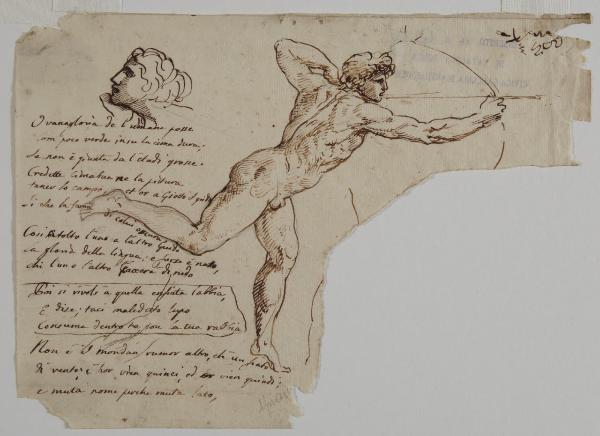 O vanagloria de l'umane posse
com poco verde in su la cima dura,
Se non è giunta da l'etadi grosse.
Credette Cimabue ne la pitura
tener lo campo, et or a Giotto il grido
Sì che la fama di colui oscura
Così à tolto l'uno a l'altro Guido
la gloria della lingua; e forse è nato,
chi l'uno e l'altro caccerà di nido
Poi si rivolse a quella enfiata labbia,
E disse; taci maledetto lupo
Consuma dentro te con la tua rabbia
Non è il mondan rumor altro, ch'un fiato
di vento, è hor vien quinci, ed or vien quindi;
e muta nome perche muta lato,